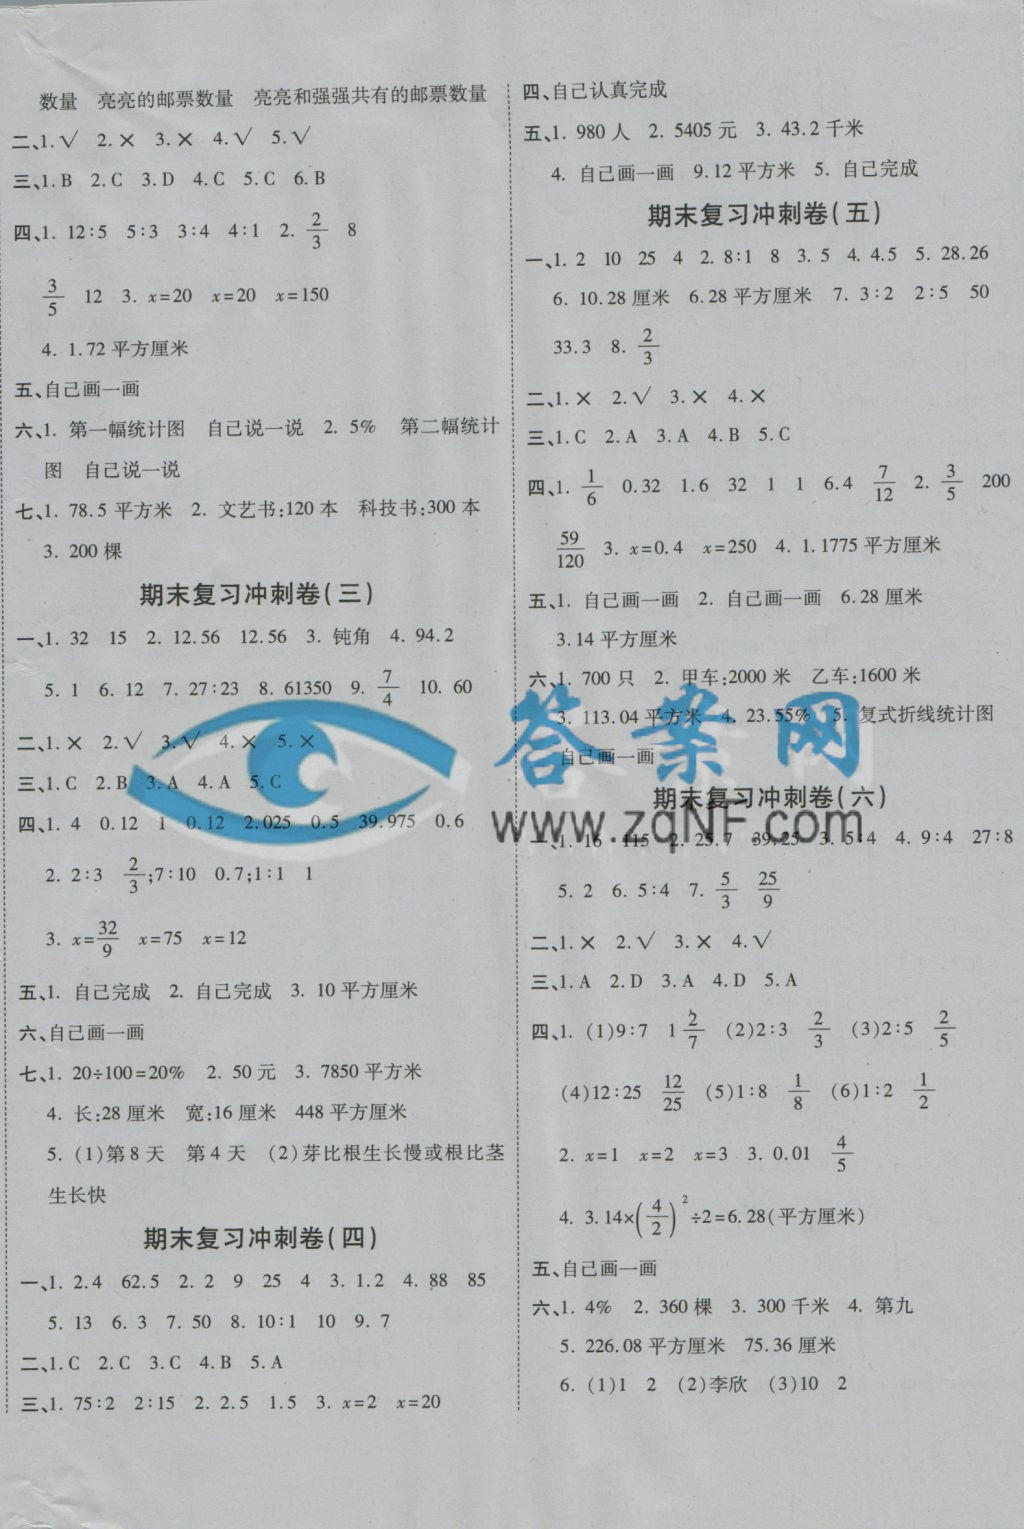 数量 亮亮的邮票数量 亮亮和强强共有的邮票数量
二、1.√ 2.× 3.× 4.√ 5.√
三、1.B 2.C 3.D 4.C 5.C 6.B
四、1. 12∶5 5∶3 3∶4 4∶1 2. 2/3 8
3/5 12 3. x=20 x=20 x=150
4. 1.72 平方厘米
五、自己画一画
六、1. 第一幅统计图 自己说一说 2. 5% 第二幅统计
图 自己说一说
七、1. 78.5 平方米 2. 文艺书:120 本 科技书:300 本
3. 200 棵
期末复习冲刺卷(三)
一、1. 32 15 2. 12.56 12.56 3. 钝角 4. 94.2
5. 1 6. 12 7. 27∶23 8. 61350 9. 7/4 10. 60
二、1.× 2.√ 3.√ 4.× 5.×
三、1.C 2.B 3.A 4.A 5.C
四、1. 4 0.12 1 0.12 2.025 0.5 39.975 0.6
2. 2∶3 2/3;7∶10 0.7;1∶1 1
3. x=32/9 x=75 x=12
五、1. 自己完成 2. 自己完成 3. 10 平方厘米
六、自己画一画
七、1. 20÷100=20% 2. 50 元 3. 7850 平方米
4. 长:28 厘米 宽:16 厘米 448 平方厘米
5. (1)第 8 天 第 4 天 (2)芽比根生长慢或根比茎
生长快
期末复习冲刺卷(四)
一、1. 2.4 62.5 2. 2 9 25 4 3. 1.2 4. 88 85
5. 13 6. 3 7. 50 8. 10∶1 10 9. 7
二、1.C 2.C 3.C 4.B 5.A
三、1. 75∶2 2∶15 2. 2.5 1.5 3. x=2 x=20
四、自己认真完成
五、1. 980 人 2. 5405 元 3. 43.2 千米
4. 自己画一画 9.12 平方厘米 5. 自己完成
期末复习冲刺卷(五)
一、1. 2 10 25 4 2. 8∶1 8 3. 5 4. 4.5 5. 28.26
6. 10.28 厘米 6.28 平方厘米 7. 3∶2 2∶5 50
33.3 8. 2/3
二、1.× 2.√ 3.× 4.×
三、1.C 2.A 3.A 4.B 5.C
四、1. 1/6 0.32 1.6 32 1 1 6.4 7/12 2. 3/5 200
59/120 3. x=0.4 x=250 4. 1.1775 平方厘米
五、1. 自己画一画 2. 自己画一画 6.28 厘米
3.14 平方厘米
六、1. 700 只 2. 甲车:2000 米 乙车:1600 米
3. 113.04 平方米 4. 23.55% 5. 复式折线统计图
自己画一画
期末复习冲刺卷(六)
一、1. 16 115 2. 25.7 39.25 3. 5∶4 4. 9∶4 27∶8
5. 2 6. 5∶4 7. 5/3 25/9
二、1.× 2.√ 3.× 4.√
三、1.A 2.D 3.A 4.D 5.A
四、1. (1)9∶7 1 2/7 (2)2∶3 2/3 (3)2∶5 2/5
(4)12∶25 12/25 (5)1∶8 1/8 (6)1∶2 1/2
2. x=1 x=2 x=3 3. 0.01 4/5
4. 3.14×(4/2)²÷2=6.28(平方厘米)
五、自己画一画
六、1. 4% 2. 360 棵 3. 300 千米 4. 第九
5. 226.08 平方厘米 75.36 厘米
6. (1)1 2 (2)李欣 (3)10 2
答案网
www.zqNF.com